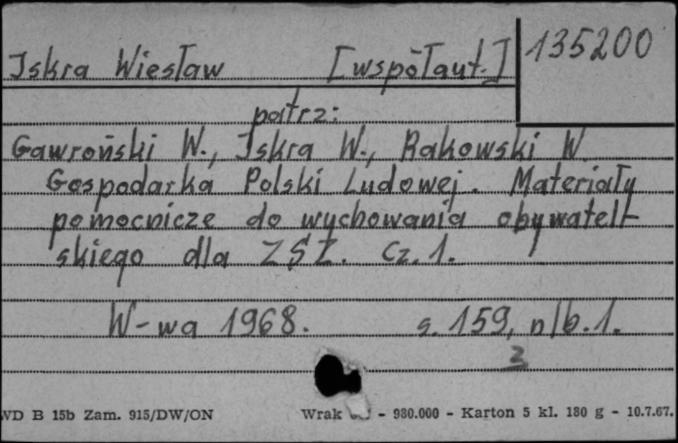 135200
Iskra Wiesław [współaut.]
patrz:
Gawroński W., Iskra W., Rakowski W.
Gospodarka Polski Ludowej. Materiały
pomocnicze do wychowania obywatel-
skiego dla ZSZ. Cz. 1.
W-wa 1968. s. 159, nlb. 1.
3
WD B 15b Zam. 915/DW/ON Wrak - 930.000 - Karton 5 kl. 180 g - 10.7.67.